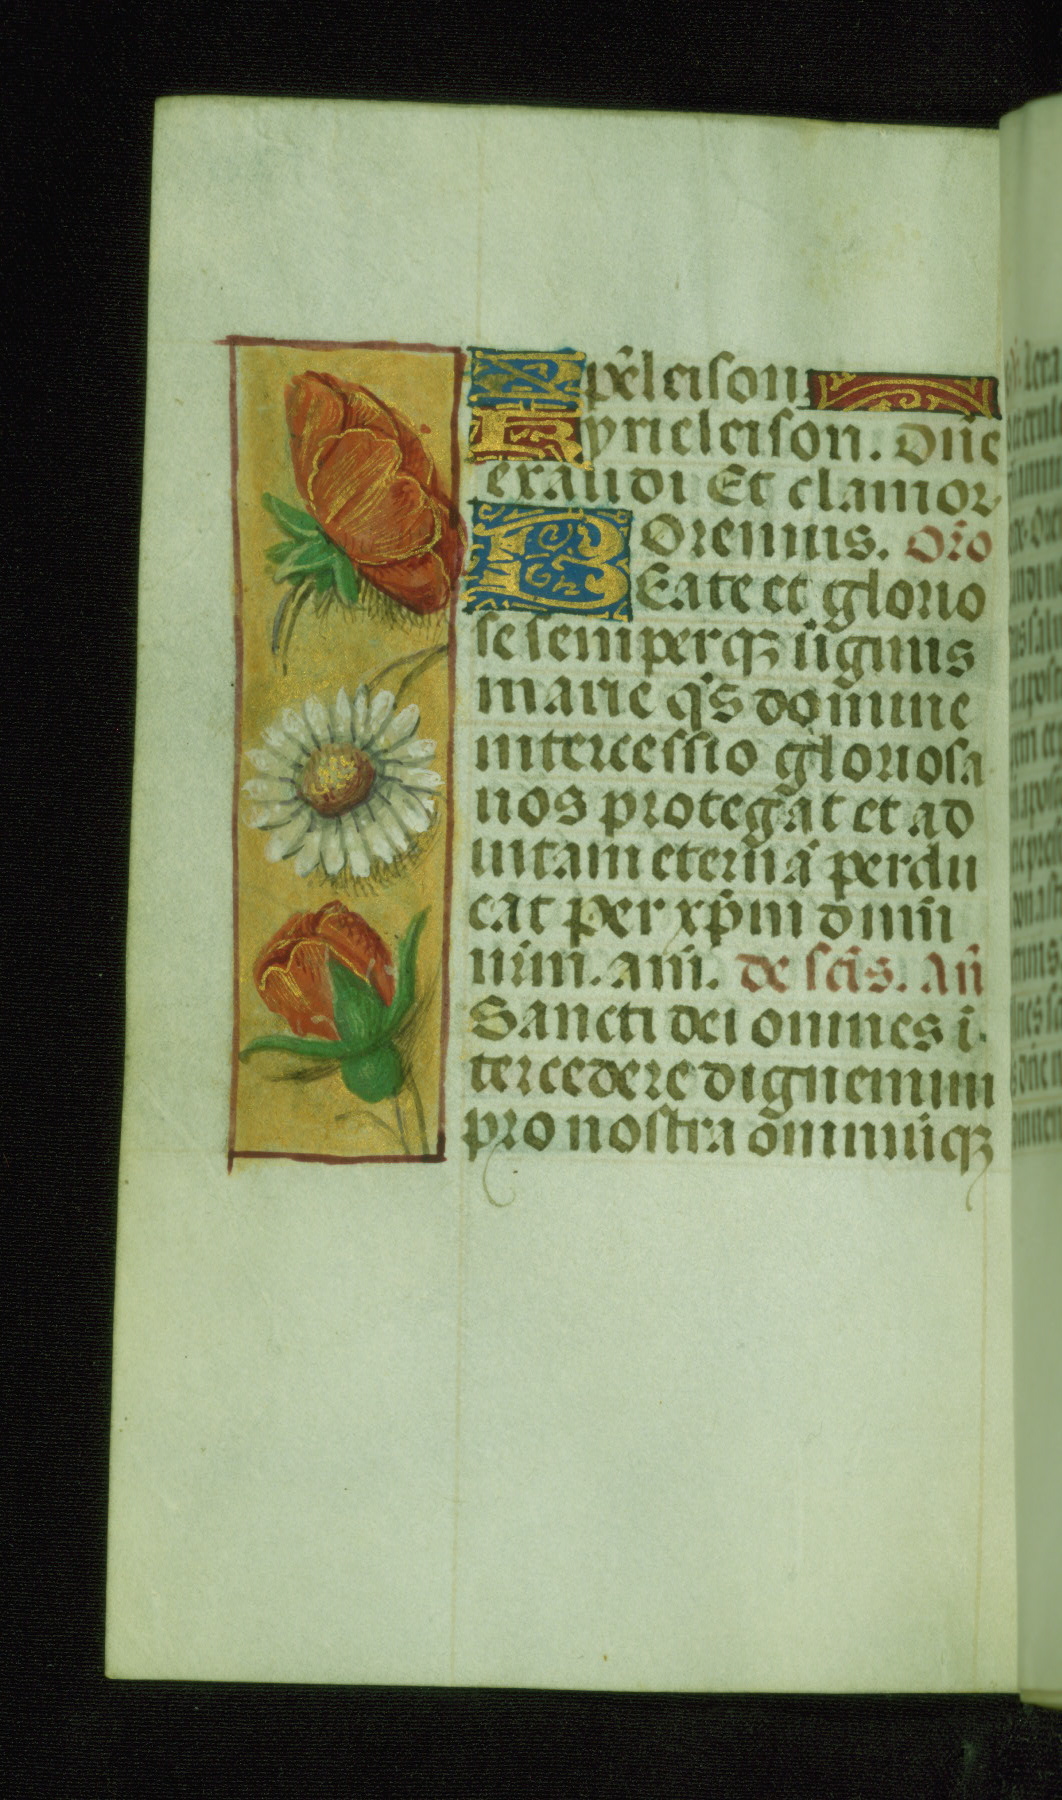 Xp̄eleison
Kyrieleison. Dn̄e
exaudi Et clamor
Oremus. Or̄o
BEate et glorio
se semperqꝫ ūginis
marie q̄s domine
intercessio gloriosa
nos protegat et ad
uitam eternā perdu
cat per xp̄m dm̄
nr̄m. am̄. de sc̄is. An̄
Sancti dei omnes ī
tercedere dignemini
pro nostra om̄niūqꝫ